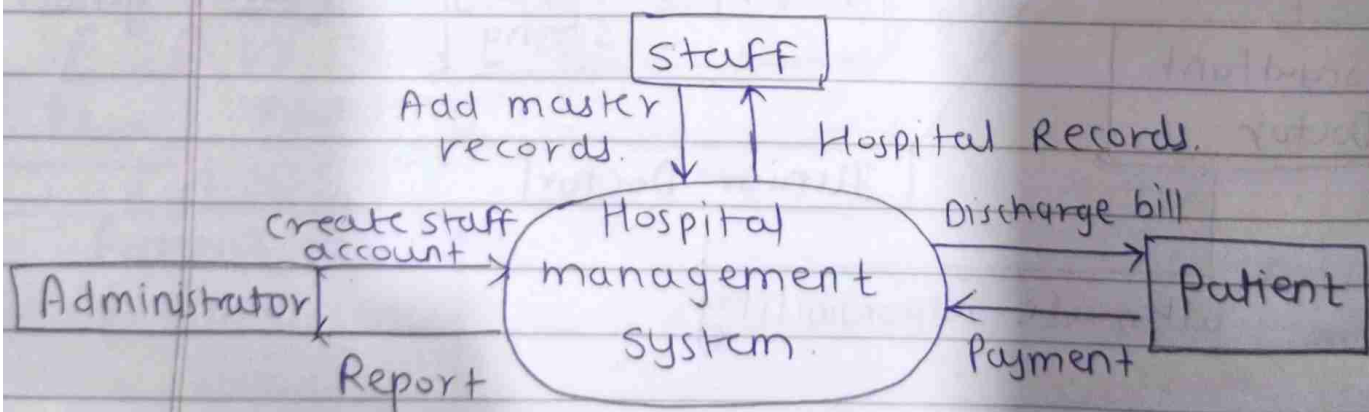 Staff
Add master
records.
Hospital Records.
create staff
account
Hospital
management
system.
Discharge bill
Administrator
Patient
Report
Payment